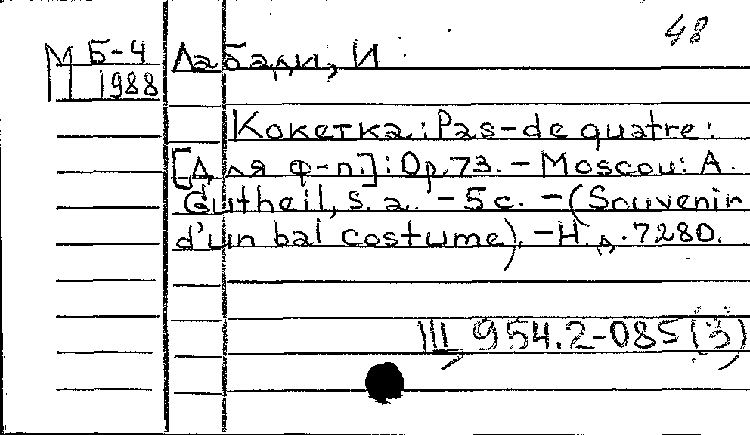 48
М Б-4
1988
Лабади, И
Кокетка: Pas-de quatre:
[Для ф-п.]: Op.73. - Moscou: A.
Gutheil, s. a. - 5 с. - (Souvenir
d'un bal costume), - Н. д. 7280.
III, 954.2-085(3)